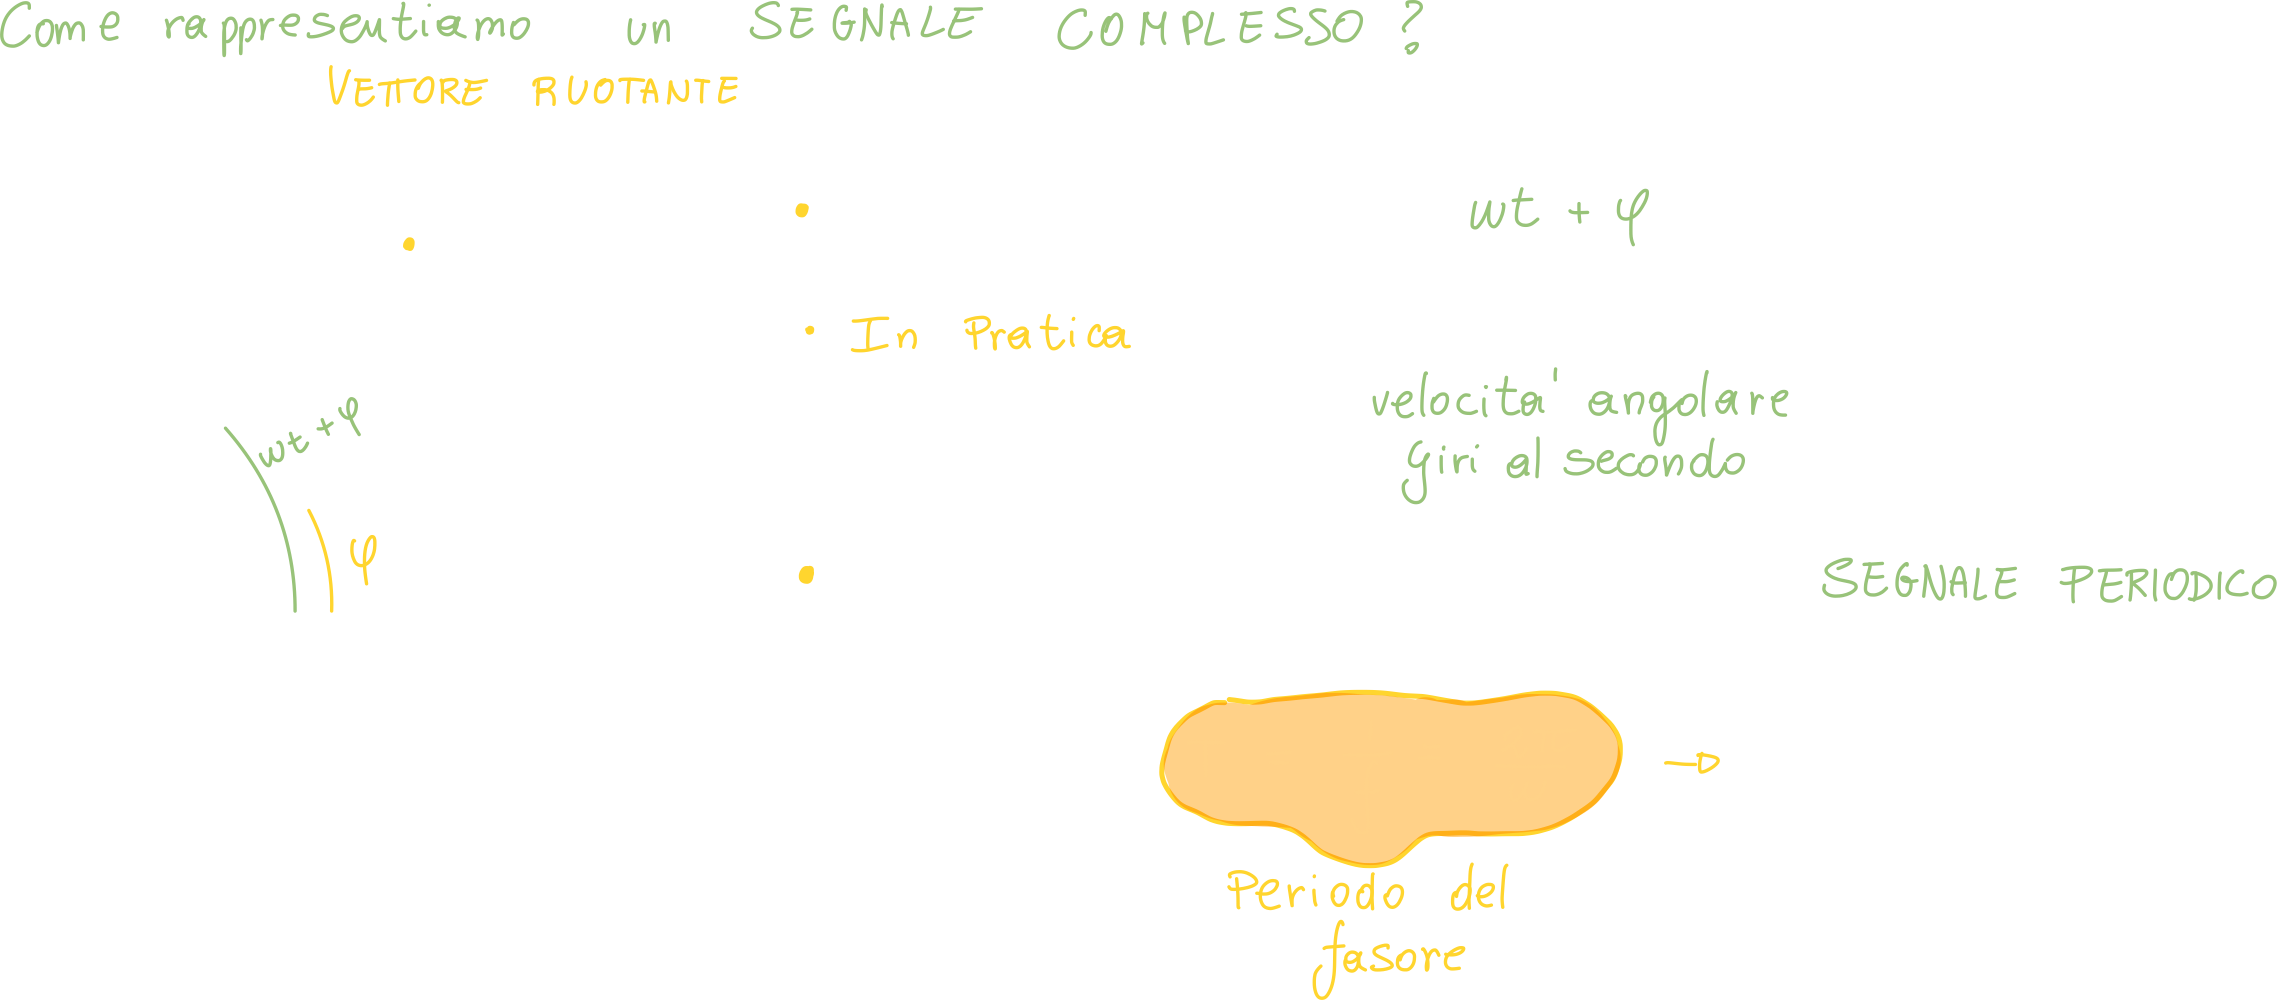 Come rappresentiamo un SEGNALE COMPLESSO?
VETTORE RUOTANTE
wt + φ
• In Pratica
velocita' angolare
giri al secondo
wt + φ
φ
SEGNALE PERIODICO
Periodo del
fasore